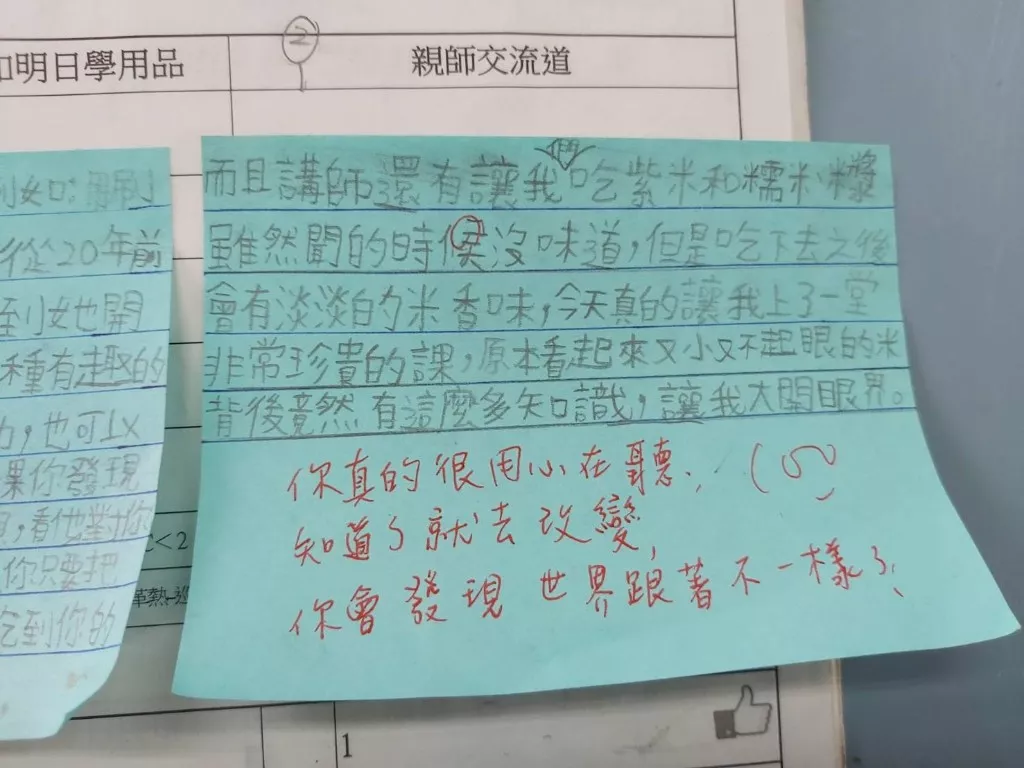 ②
和明日學用品
親師交流道
到如
從20年前
到女也開
種有趣的
力,也可以
果你發現
,看他對
你只要把
吃到你的
而且講師還有讓我們吃紫米和糯米
雖然聞的時候沒味道,但是吃下去之後
會有淡淡的米香味,今天真的讓我上了一堂
非常珍貴的課,原本看起來又小又不起眼的米
背後竟然有這麼多知識,讓我大開眼界。
你真的很用心在聽.
知道了就去改變,
你會發現世界跟著不一樣了
<2
革熱-巡
1